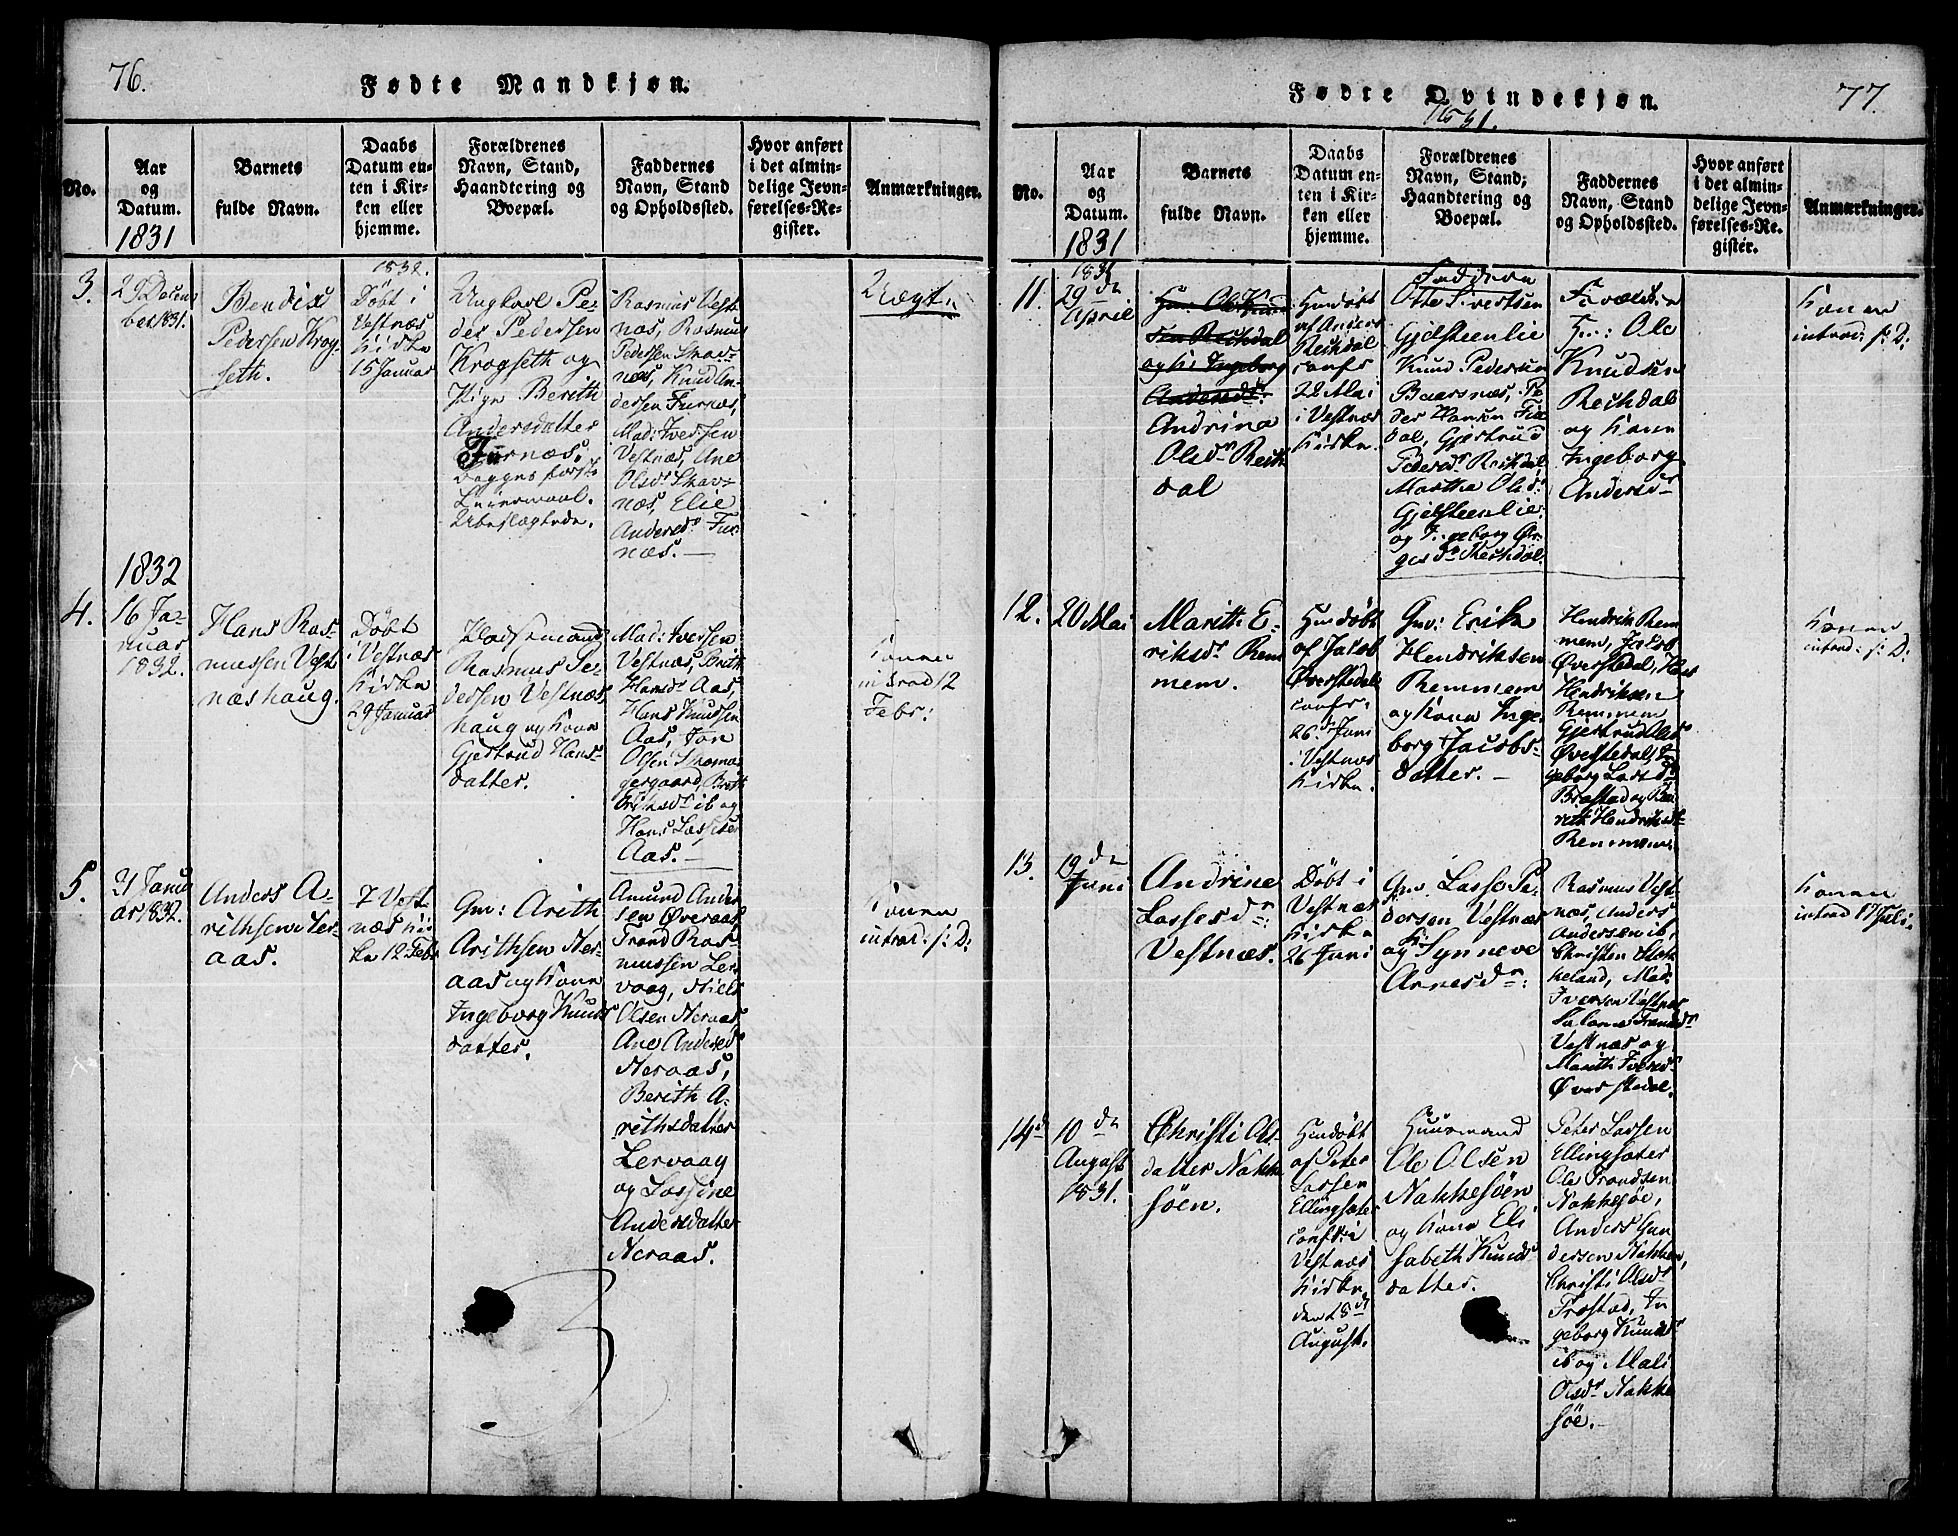 76.
Fødte Mandkjøn.
No.
Aar
og
Datum.
1831
Barnets
fulde Navn.
Daabs
Datum en-
ten i Kir-
ken eller
hjemme.
Forældrenes
Navn, Stand,
Haandtering og
Boepæl.
Faddernes
Navn, Stand
og Opholdssted.
Hvor anført
i det almin-
delige Jevn-
førelses-Re-
gister.
Anmærkninger.
3.
29 Decem
ber 1831.
Bendix
Pedersen Krog-
seth.
1832.
Døbt i
Vestnæs
Kirke
15 Januar
Ungkarl Pe-
der Pedersen
Krogseth og
Pige Berith
Andersdatter
Furnæs.
Begges første
Leiermaal.
Ubeslægtede.
Rasmus Vest-
næs, Rasmus
Pedersen Skar-
næs, Knud An-
dersen Furnæs,
Mad: Iversen
Vestnæs, Ane
Olsdr Skar-
næs, Elie
Andersdr Fur-
næs. —
Uægte
1832
4.
16 Ja-
nuar
1832.
Hans Ras-
mussen Vest-
næshaug.
Døbt
i Vestnæs
Kirke
29 Januar
Huusmand
Rasmus Pe-
dersen Vestnæs
haug og Kone
Gjertrud Hans-
datter.
Mad: Iversen
Vestnæs, Brith
Hansdr Aas,
Hans Knudsen
Aas, Jon
Olsen
Eriksdr ib og
Hans Lassesen
Aas. —
Konen
introd 12
Febr:
5.
21 Janu
ar 1832.
Anders A-
rithsen Ner-
aas.
I Vest
næs Kir
ke 12 Febr
Gm: Arith
Arithsen Ner-
aas og Kone
Ingeborg Knuds
datter.
Amund Ander
sen Øveraas,
Trond Ras-
mussen Ler
vaag, Niels
Olsen Neraas,
Ane Andersdr
Neraas,
Berith A-
rithsdatter
Lervaag
og Lassine
Andersdatter
Neraas.
Konen
introd: s: D:
Fødte Qvindekjøn.
77.
1831.
No.
Aar
og
Datum.
1831
Barnets
fulde Navn.
Daabs
Datum en-
ten i Kir-
ken eller
hjemme.
Forældrenes
Navn, Stand,
Haandtering og
Boepæl.
Faddernes
Navn, Stand
og Opholdssted.
Hvor anført
i det almin-
delige Jevn-
førelses-Re-
gister.
Anmærkninger.
11.
1831
29de
April
Gm: Ole Knud
sen Rechdal
og K: Ingeborg
Andersdr.
Andrina
Olsdr Rech
dal
Hmdøbt
af Anders
Rechdal
confr
22 Mai
i Vestnæs
Kirke.
Faddere
Otte Sivertsen
Gjelsteenlie
Knud Pedersen
Baarsnæs, Pe
der Hansen Fie
dal, Gjertrud
Pedersdr Rechdal
Martha Olsdr
Gjelsteenlie
og Ingeborg
Rechdal.
Forældre
Gm: Ole
Knudsen
Rechdal
og Kone
Ingeborg
Andersdr
Konen
introd: s: D:
12.
20 Mai
Marith E-
riksdr Rem
mem.
Hmdøbt
af Jacob
Øverstedal
confr.
26de Juni
i Vestnæs
Kirke.
Gm: Erik
Hendriksen
Remmem
og Kone Inge
borg Jacobs-
datter. —
Hendrik Rem
mem, Jacob
Øverstedal, Hans
Hendriksen
Remmem
Gjertrud Olsdr
Øverstedal, In
geborg Larsdr
Brastad og Be
rith Hendriksdr
Remmem.
Konen
introd: s: D:
13.
19de
Juni
Andrine
Lassesdr:
Vestnæs.
Døbt i
Vestnæs
Kirke
26 Juni
Gm Lasse Pe
dersen Vestnæs
og K: Synneve
Arnesdr:
Rasmus Vest
næs, Anders
Andersen ib,
Christen Stok
keland, Mad.
Iversen Vestnæs
Vestnæs og
Marith Iversdr
Øverstedal.
Konen
introd 17 Juli.
14.
10de
August
1831.
Christi Ols
datter Nakke
søen.
Hmdøbt
af Peter
Larsen
Ellingsæter
conft i
Vestnæs
Kirke
den 28de
August.
Huusmand
Ole Olsen
Nakkesøen
og Kone Eli
sabeth Knuds
datter.
Peter Larsen
Ellingsæter
Ole Trondsen
Nakkesøe,
Anders Gun
dersen Nakken,
Christi Olsdr
Frostad, In
geborg Knudsdr
ib og Mali
Olsdr Nakke
søe. —